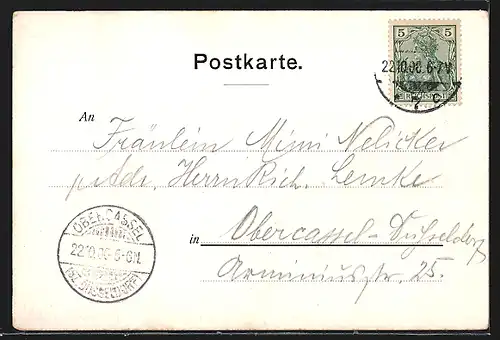 Postkarte.
5 5
REICHSPOST
22.10.00. 6-7 V.
An
Fräulein Mimi Nelicker
p. Adr. Herrn Rich. Lemke
in Obercassel-Düsseldorf
Arminiusstr. 25.
OBERCASSEL
22.10.00. 6-8 N.
(BZ. DÜSSELDORF)